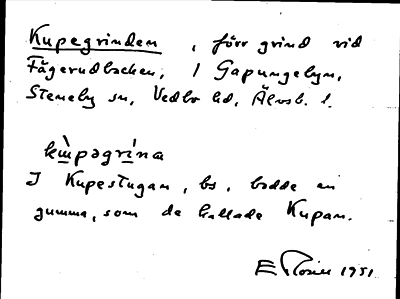 Kupegrinden, förr grind vid
Fågerudbacken, i Gapungebyn,
Steneby sn, Vedbo hd, Älvsb. l.
kɯ̀pəgrína
I Kupestugan, bs, bodde en
gumma, som de kallade Kupan.
E 1951